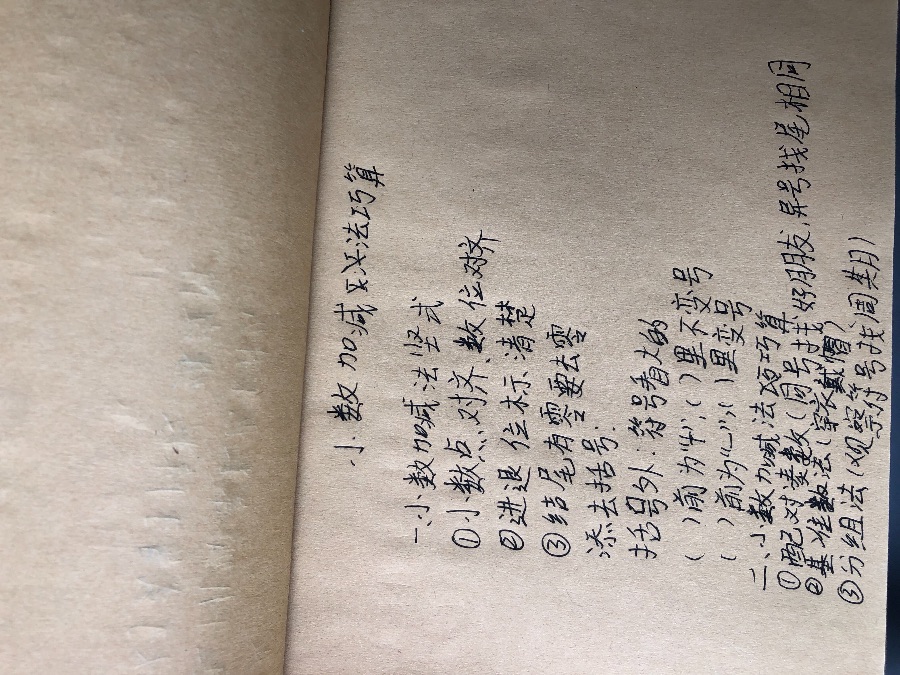 小数加减法巧算
一、小数加减法竖式
①小数点对齐、数位对齐
②进退位标清楚
③结尾有零要去零
添去括号:
括号外:符号看大的
( )前为“+”,( )里不变号
( )前为“-”,( )里变号
二、小数加减法巧算
①配对凑数(同号找好朋友,异号找尾相同
②基准数法(穿衣戴帽)
③分组法(观察符号找周期)